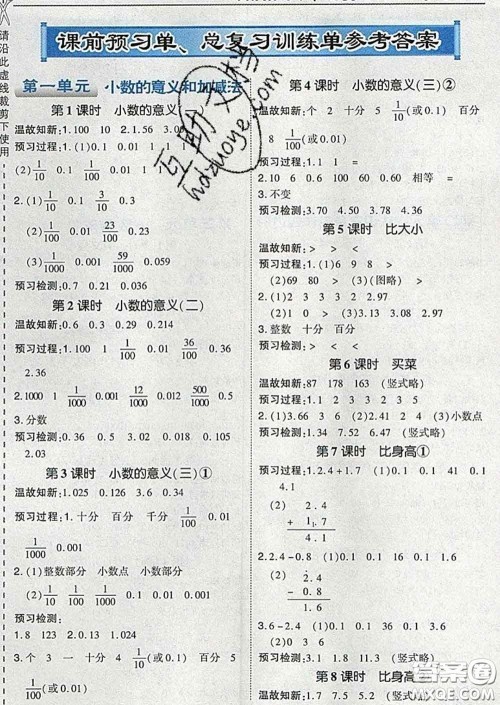 请沿此虚线裁剪下使用
课前预习单、总复习训练单参考答案
第一单元 小数的意义和加减法
第1课时 小数的意义
温故知新:1.100 10 2.1.56 3.
预习过程:1.(1)1/10 0.1
(2)1/10 0.1 3/10 0.3
2.(1)1/100 0.01 23/100 0.23
(2)1/1000 0.001 59/1000 0.059
预习检测:0.3 0.06 0.031
第2课时 小数的意义(二)
温故知新:0.6 0.3 0.29 0.214
预习过程:1.0.36 2 1/100 0.01 36/100 0.36
2.36
2.1000 1 1/1000 0.001 12/1000 0.012 500/1000
0.5
3.分数
预习检测:0.36 0.5 3.018 0.06 0.18
2.03
第3课时 小数的意义(三)①
温故知新:1.025 0.126 3.6 0.34
预习过程:1.十分 百分 千分 1/10 1/100
1/1000 0.001
2.(1)整数部分 小数点 小数部分
(2)1/10 1/100 1/1000
预习检测:
1.8 123 2.0.9 0.021
3.个 3 一 十分 4 1/10(或0.1) 百分 5
1/100(或0.01)
第4课时 小数的意义(三)②
温故知新:个 2 十分 5 1/10(或0.1) 百分
8 1/100(或0.01)
预习过程:1.1 1 =
2.10 6 0.6 10 60 0.60 相等 =
3.不变
预习检测:3.70 4.50 4.78 4.36
第5课时 比大小
温故知新:> > < <
预习过程:1.(1)6 9 8 >
(2)69 80 > (3)(图略) >
2.(1)2 3 3 3 4 3 4 3
(2)3.43 3.34 3.33 3.24
3.整数 十分 百分
预习检测:< > < > > <
第6课时 买菜
温故知新:87 178 163 (竖式略)
预习过程:1.1 1 2 3 2 2 3
2.(1)3.66 (2)1.24 2.42 (3)小数点
预习检测:7.75 5.66 41.65 (竖式略)
第7课时 比身高①
预习过程:1.2.4+1.7 (1)0.1 0.1 41 0.1 4.1
(2) 2.4
+ 1.7
4.1
2.2.4-0.8 (1)0.1 0.1 16 0.1 1.6
(2) 2.4
- 0.8
1.6
3.6-2.4 (1)0.1 0.1 36 0.1 3.6
(2)0 3 6
预习检测:31.1 1.8 11.3 (竖式略)
第8课时 比身高
温故知新:1.4 7.5 5.2 (竖式略)
互助文档
hdzuoye.com
答案圈
MXQE.COM